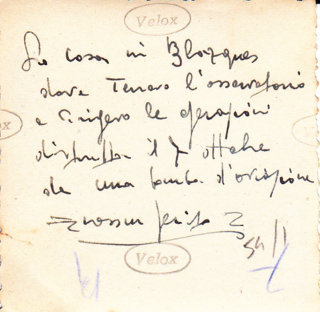 Velox
La casa in Blazques
dove Tenevo l'osservatorio
e dirigevo le operazioni
distrutta il 7 ottobre
da una bomba d'aviazione
nessun ferito
Velox